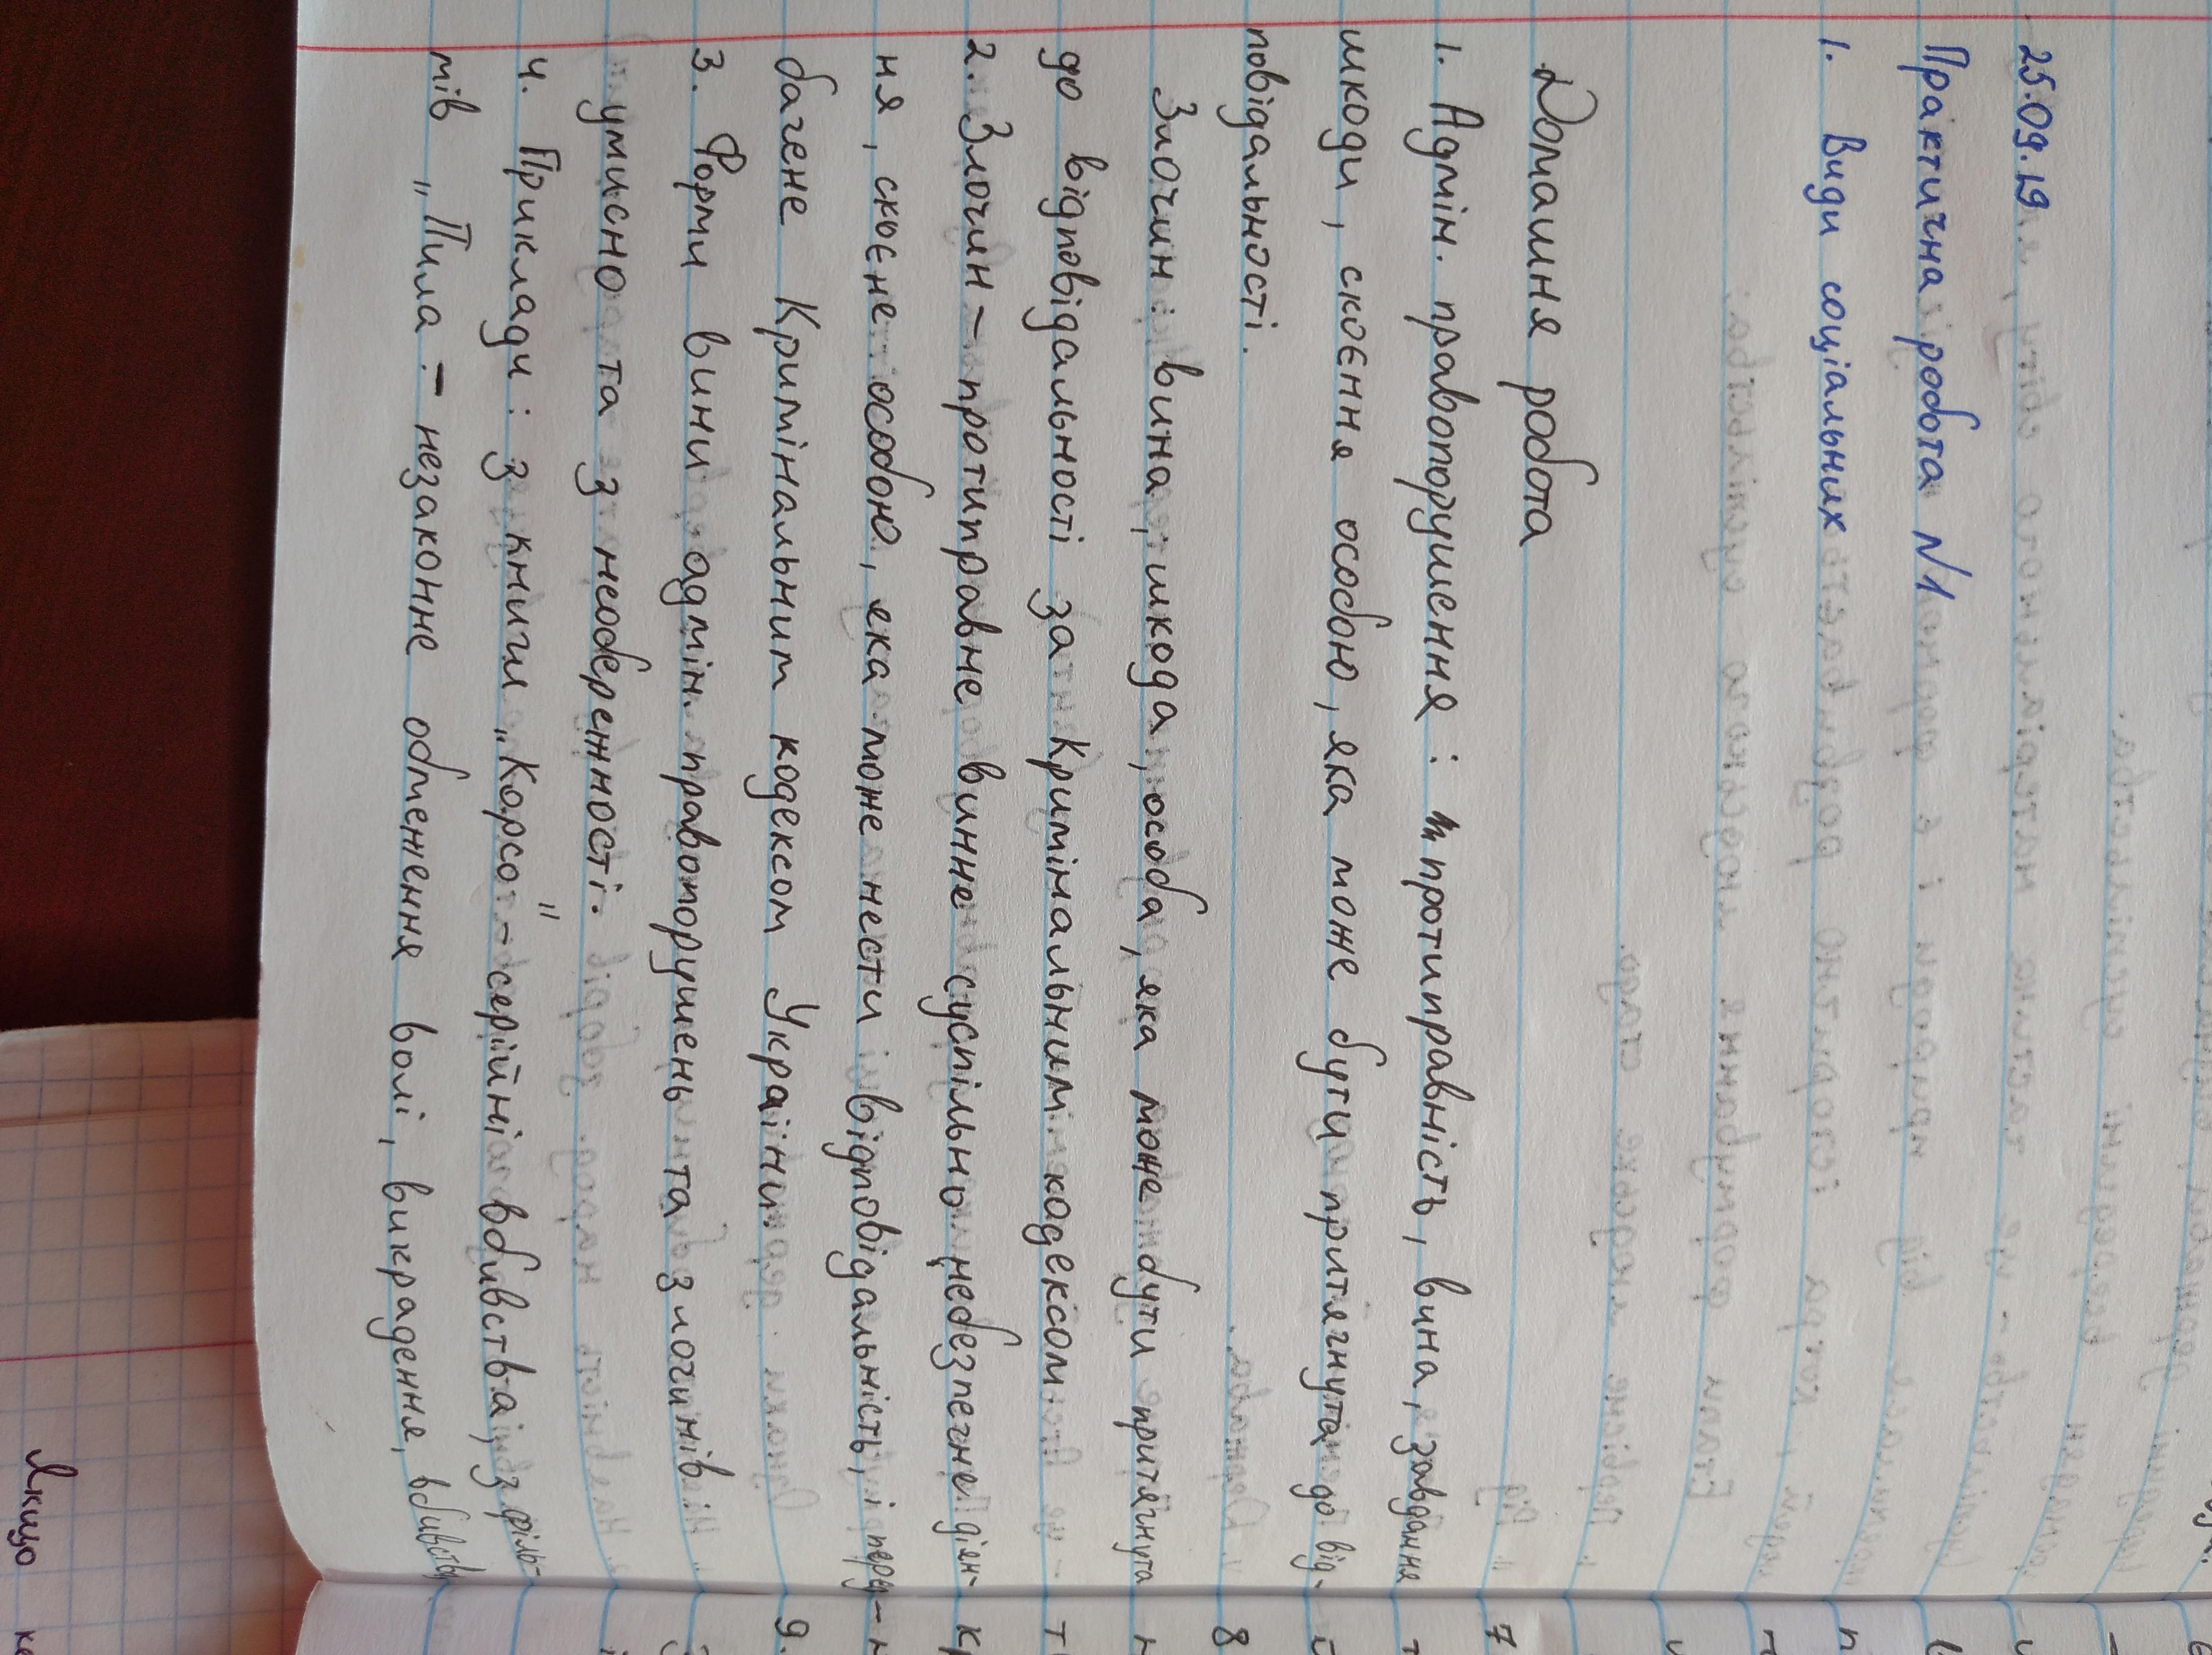 25.09.19
Практична робота №1
1. Види соціальних
Домашня робота
1. Адмін. правопорушення: протиправність, вина, завдання
шкоди, скоєння особою, яка може бути притягнута до від-
повідальності.
Злочин: вина, шкода, особа, яка може бути притягнута
до відповідальності за Кримінальним кодексом
2. Злочин - протиправне винне суспільно небезпечне діян-
ня, скоєне особою, яка може нести відповідальність, і перед-
бачене Кримінальним кодексом України.
3. Форми вини адмін. правопорушень та злочинів
умисно та з необеренності.
4. Приклади: з книги „Корсо" - серійні вбивства, з філь-
мів „Пила" - незаконне обмеження волі, викрадення, вбивства
Якщо
7
8
9.